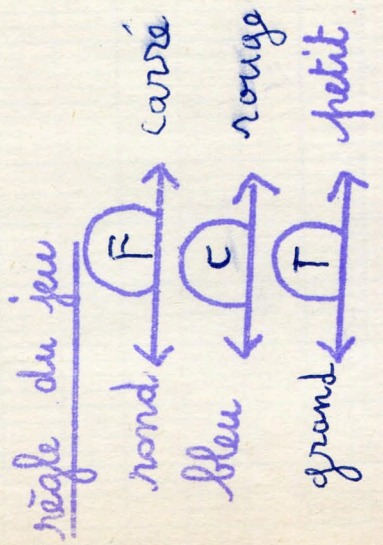 règle du jeu
rond F carré
bleu C rouge
grand T petit